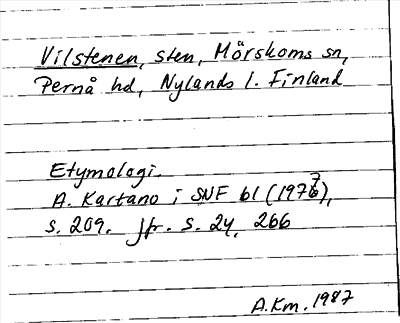 Vilstenen, sten, Mörskoms sn,
Pernå hd, Nylands l. Finland
Etymologi.
A. Kartano i SNF 61 (1977),
s. 209. Jfr. s. 24, 266
A.Km. 1987